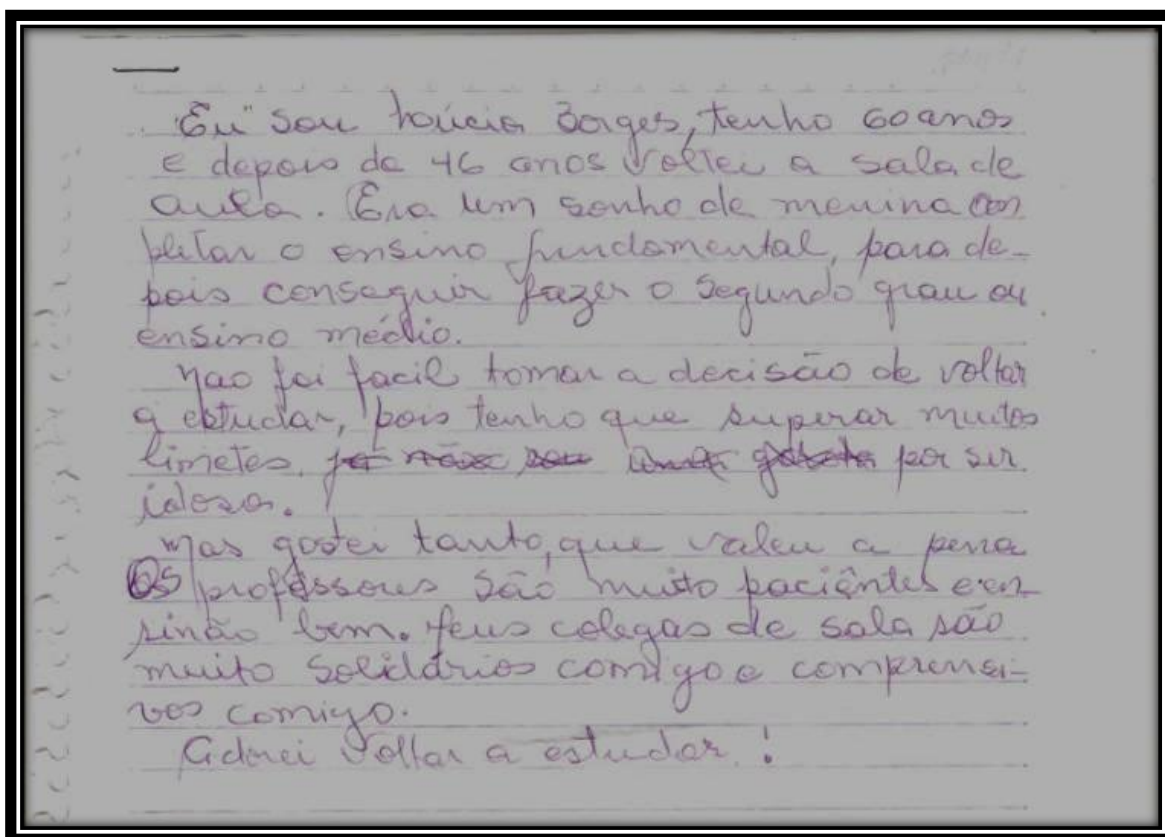 "Eu" Sou Lúcia Borges, tenho 60 anos
e depois de 46 anos voltei a sala de
aula. Era um sonho de menina con
pletar o ensino fundamental, para de-
pois conseguir fazer o segundo grau ou
ensino médio.
Nao foi facil tomar a decisão de voltar
a estudar, pois tenho que superar muitos
limetes, por ser
idosa.
Mas gostei tanto, que valeu a pena
Os professores são muito paciêntes e en-
sinão bem. Meus colegas de sala são
muito solidários comigo e comprensi-
vos comigo.
Adorei voltar a estudar!